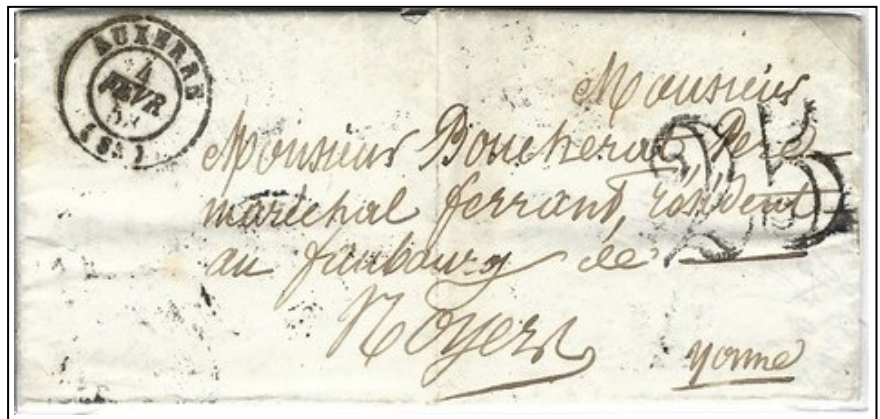 AUXERRE
4
FEVR
(83)
25
Monsieur
Monsieur Boucherat Père
maréchal ferrant, résident
au faubourg de
Noyers
yonne